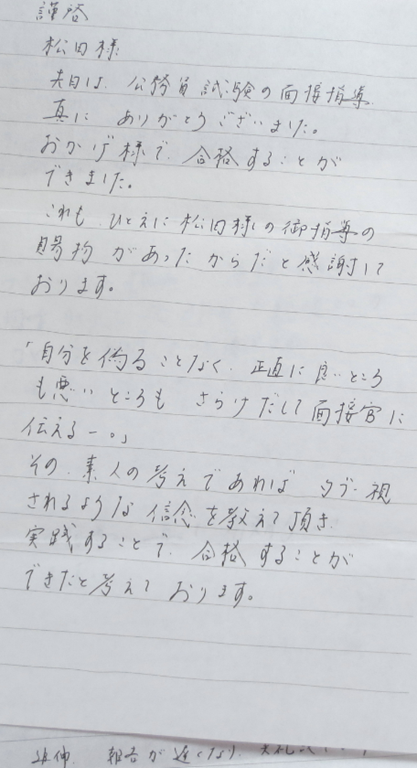 謹啓
松田様
先日は、公務員試験の面接指導
真に ありがとうございました。
おかげ様で、合格することが
できました。
これも ひとえに松田様の御指導の
賜物 があったからだと感謝して
おります。
「自分を偽ることなく、正直に良いところ
も悪いところも さらけだして面接官に
伝えるー。」
その、素人の考えであれば タブー視
されるような信念を教えて頂き、
実践することで、合格することが
できたと考えて おります。
追伸 報告が遅くなり、失礼